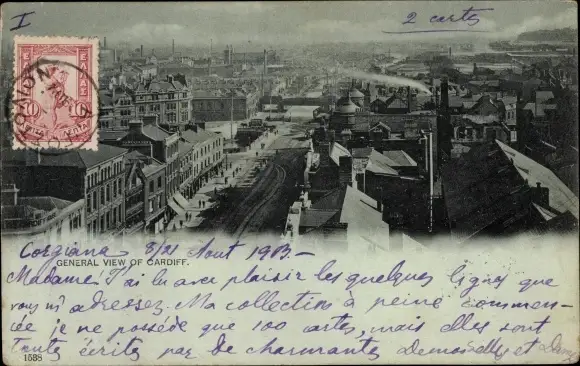 I
2 cartes
10
GENERAL VIEW OF CARDIFF.
Corgiana 8/21 Août 1903.-
Madame! J'ai lu avec plaisir les quelques lignes que
vous m' adressez. Ma collection à peine commen-
cée je ne possède que 100 cartes, mais elles sont
toutes écrites par de charmantes Demoiselles et Dames
1538